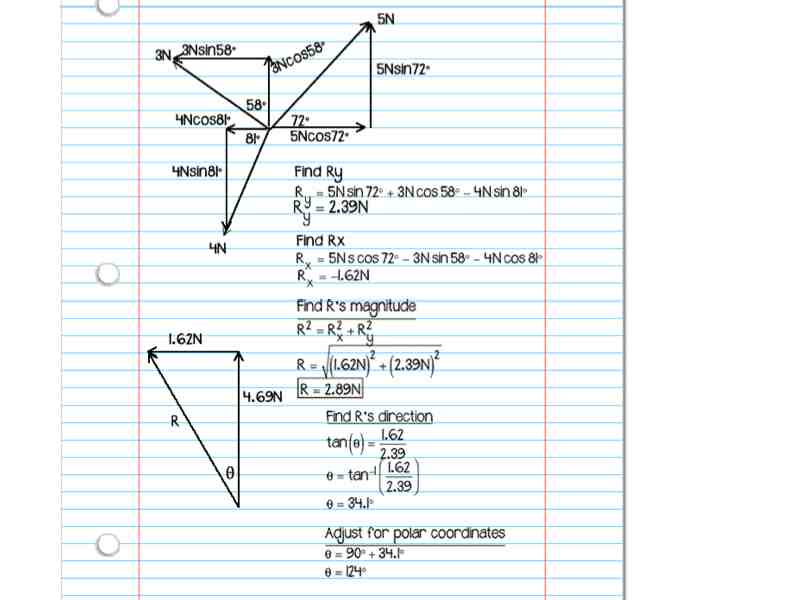 5N
3N 3Nsin58°
3Ncos58°
5Nsin72°
58°
4Ncos81°
72°
81°
5Ncos72°
4Nsin81°
4N
Find Ry
R_y = 5N sin 72° + 3N cos 58° − 4N sin 81°
R_y = 2.39N
Find Rx
R_x = 5N s cos 72° − 3N sin 58° − 4N cos 81°
R_x = −1.62N
Find R's magnitude
R² = R_x² + R_y²
R = √((1.62N)² + (2.39N)²)
R = 2.89N
1.62N
4.69N
R
θ
Find R's direction
tan(θ) = 1.62/2.39
θ = tan⁻¹(1.62/2.39)
θ = 34.1°
Adjust for polar coordinates
θ = 90° + 34.1°
θ = 124°